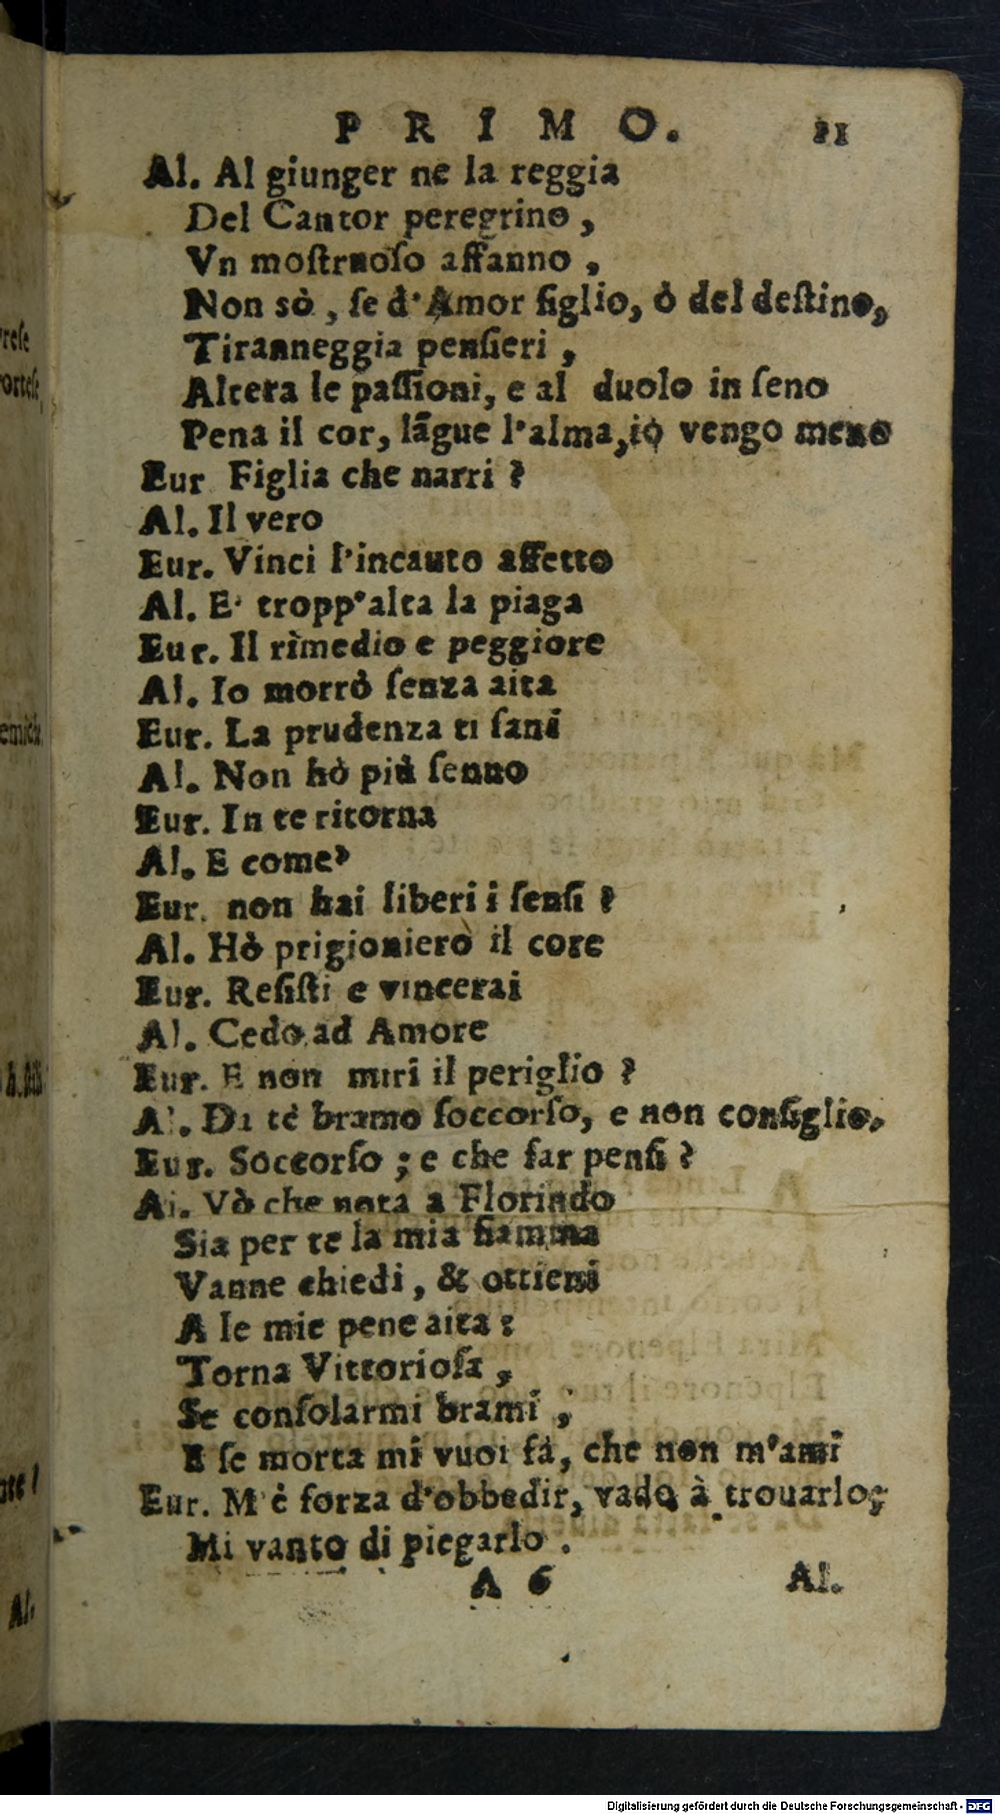 PRIMO. 11
Al. Al giunger ne la reggia
Del Cantor peregrino,
Vn moſtruoſo affanno,
Non sò, ſe d'Amor figlio, ò del deſtino,
Tiranneggia penſieri,
Altera le paſſioni, e al duolo in ſeno
Pena il cor, lãgue l'alma, io vengo meno
Eur Figlia che narri?
Al. Il vero
Eur. Vinci l'incauto affetto
Al. E' tropp'alta la piaga
Eur. Il rìmedio e peggiore
Al. Io morrò ſenza aita
Eur. La prudenza ti ſani
Al. Non hò più ſenno
Eur. In te ritorna
Al. E come?
Eur. non hai liberi i ſenſi?
Al. Hò prigioniero il core
Eur. Reſiſti e vincerai
Al. Cedo ad Amore
Eur. E non miri il periglio?
Al. Da tè bramo ſoccorſo, e non conſiglio.
Eur. Soccorſo; e che far penſi?
Al. Vò che nota a Florindo
Sia per te la mia fiamma
Vanne chiedi, & ottieni
A le mie pene aita:
Torna Vittorioſa,
Se conſolarmi brami;
E ſe morta mi vuoi fà, che non m'ami
Eur. M'è forza d'obbedir, vado à trouarlo;
Mi vanto di piegarlo.
A 6 Al.
reſe
orteſe
emich
Al.
Digitalisierung gefördert durch die Deutsche Forschungsgemeinschaft - DFG